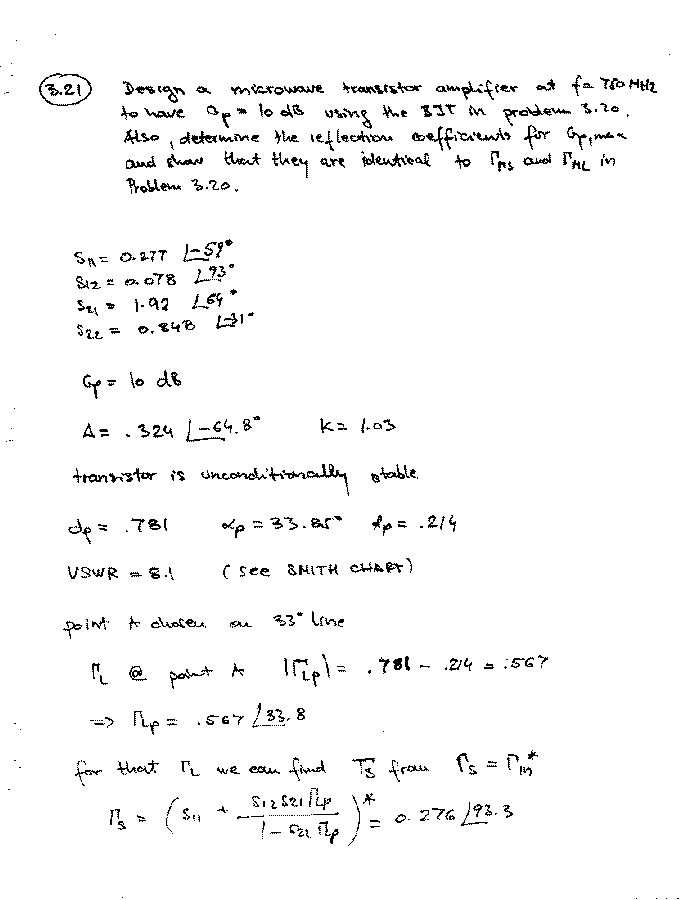 3.21 Design a microwave transistor amplifier at f = 750 MHz
to have Gp = 10 dB using the BJT in problem 3.20.
Also, determine the reflection coefficients for Gp,max
and show that they are identical to ΓMS and ΓML in
Problem 3.20.
S11 = 0.277 ∠-59°
S12 = 0.078 ∠93°
S21 = 1.92 ∠64°
S22 = 0.848 ∠-31°
Gp = 10 dB
Δ = .324 ∠-64.8° K = 1.03
transistor is unconditionally stable
dp = .781 αp = 33.85° rp = .214
VSWR = 8.1 (see SMITH CHART)
point A chosen on 33° line
ΓL @ point A |ΓLp| = .781 - .214 = .567
=> ΓLp = .567 ∠33.8
for that ΓL we can find ΓS from ΓS = Γin*
ΓS = (S11 + S12 S21 ΓLp / 1 - S22 ΓLp)* = 0.276 ∠93.3